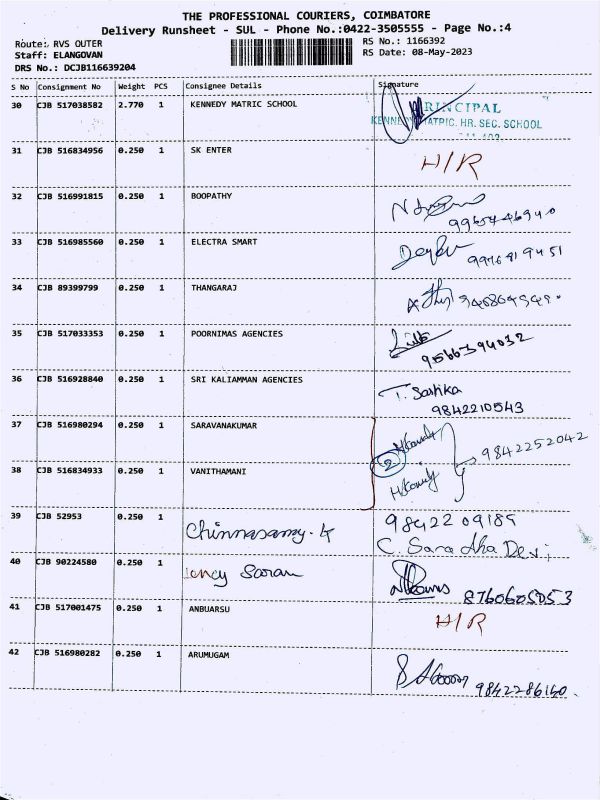 THE PROFESSIONAL COURIERS, COIMBATORE
Delivery Runsheet - SUL - Phone No.:0422-3505555 - Page No.:4
Route: RVS OUTER
RS No.: 1166392
Staff: ELANGOVAN
RS Date: 08-May-2023
DRS No.: DCJB116639204
S No Consignment No Weight PCS Consignee Details Signature
30 CJB 517038582 2.770 1 KENNEDY MATRIC SCHOOL
PRINCIPAL
KENNEDY MATRIC. HR. SEC. SCHOOL
31 CJB 516834956 0.250 1 SK ENTER H/R
32 CJB 516991815 0.250 1 BOOPATHY
33 CJB 516985560 0.250 1 ELECTRA SMART
34 CJB 89399799 0.250 1 THANGARAJ
35 CJB 517033353 0.250 1 POORNIMAS AGENCIES
9566394032
36 CJB 516928840 0.250 1 SRI KALIAMMAN AGENCIES T. Sasthika
9842210543
37 CJB 516980294 0.250 1 SARAVANAKUMAR
2 9842252042
38 CJB 516834933 0.250 1 VANITHAMANI
39 CJB 52953 0.250 1 Chinnasamy. K 9842209189
C. Saradha Devi
40 CJB 90224580 0.250 1 Saran
8760605053
41 CJB 517001475 0.250 1 ANBUARSU H/R
42 CJB 516980282 0.250 1 ARUMUGAM
9842286140